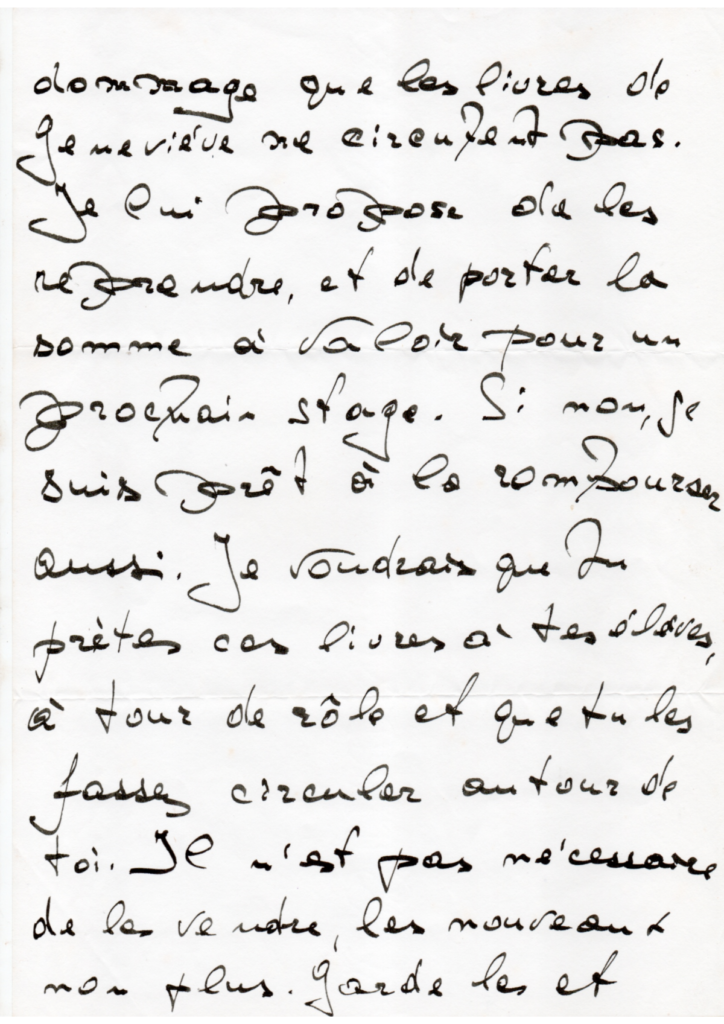 dommage que les livres de
Geneviève ne circulent pas.
Je lui propose de les
reprendre, et de porter la
somme à valoir pour un
prochain stage. Si non, je
suis prêt à la rembourser
aussi. Je voudrais que tu
prètes ces livres à tes élèves,
à tour de rôle et que tu les
fasses circuler autour de
toi. Il n'est pas nécessaire
de les vendre, les nouveaux
non plus. Garde les et